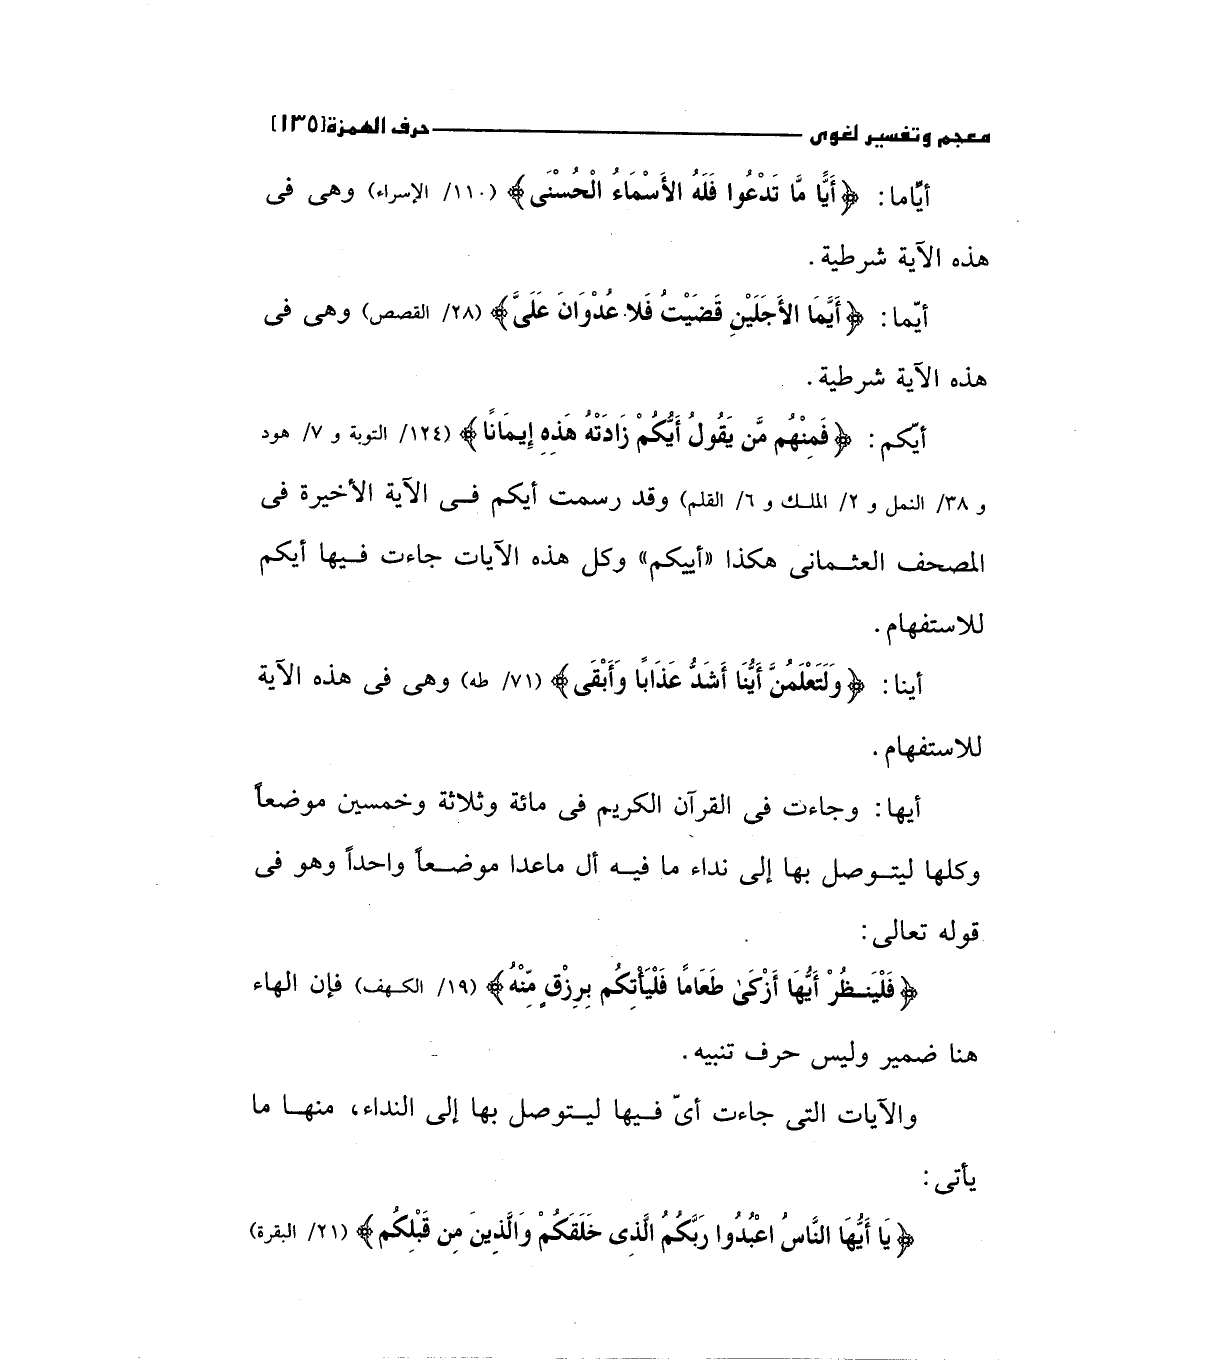 معجم وتفسير لغوى ـــــــــ حرف الهمزة [١٣٥]
أيّاما: ﴿أَيًّا مَّا تَدْعُوا فَلَهُ الأَسْمَاءُ الْحُسْنَى﴾ (١١٠/ الإسراء) وهى فى
هذه الآية شرطية.
أيّما: ﴿أَيَّمَا الأَجَلَيْنِ قَضَيْتُ فَلا عُدْوَانَ عَلَىَّ﴾ (٢٨/ القصص) وهى فى
هذه الآية شرطية.
أيّكم: ﴿فَمِنْهُم مَّن يَقُولُ أَيُّكُمْ زَادَتْهُ هَذِهِ إِيمَانًا﴾ (١٢٤/ التوبة و ٧/ هود
و ٣٨/ النمل و ٢/ الملك و ٦/ القلم) وقد رسمت أيكم فى الآية الأخيرة فى
المصحف العثمانى هكذا «أييكم» وكل هذه الآيات جاءت فيها أيكم
للاستفهام.
أينا: ﴿وَلَتَعْلَمُنَّ أَيُّنَا أَشَدُّ عَذَابًا وَأَبْقَى﴾ (٧١/ طه) وهى فى هذه الآية
للاستفهام.
أيها: وجاءت فى القرآن الكريم فى مائة وثلاثة وخمسين موضعاً
وكلها ليتوصل بها إلى نداء ما فيه أل ماعدا موضعاً واحداً وهو فى
قوله تعالى:
﴿فَلْيَنظُرْ أَيُّهَا أَزْكَىٰ طَعَامًا فَلْيَأْتِكُم بِرِزْقٍ مِّنْهُ﴾ (١٩/ الكهف) فإن الهاء
هنا ضمير وليس حرف تنبيه.
والآيات التى جاءت أىّ فيها ليتوصل بها إلى النداء، منها ما
يأتى:
﴿يَا أَيُّهَا النَّاسُ اعْبُدُوا رَبَّكُمُ الَّذِى خَلَقَكُمْ وَالَّذِينَ مِن قَبْلِكُم﴾ (٢١/ البقرة)